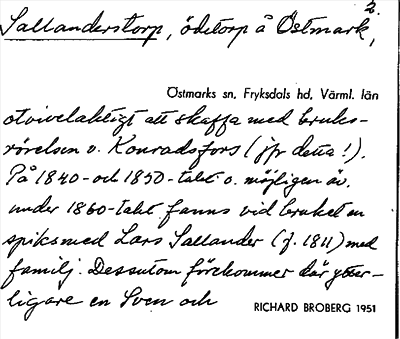 2.
Sallanderstorp, ödetorp å Östmark,
Östmarks sn, Fryksdals hd, Värml. län
otvivelaktigt att skaffa med bruks-
rörelsen v. Konradsfors (jfr detta!).
På 1840- och 1850-talet o. möjligen äv.
under 1860-talet fanns vid bruket en
spiksmed Lars Sallander (f. 1811) med
familj. Dessutom förekommer där ytter-
ligare en Sven och
RICHARD BROBERG 1951